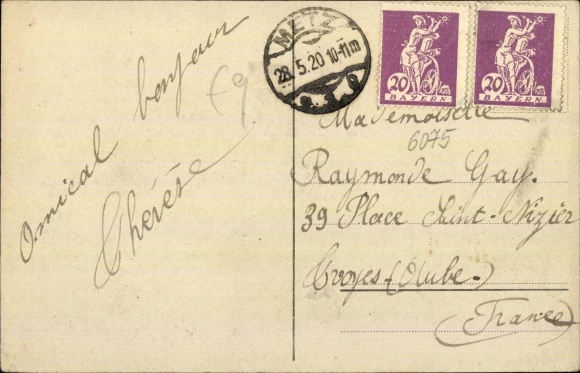 Amical bonjour
Thérèse
£9
METZ
28.5.20 10-11 m
20
BAYERN
20
BAYERN
Mademoiselle
6075
Raymonde Gay.
39 Place Saint-Nizier
Troyes-(Aube-)
(France)